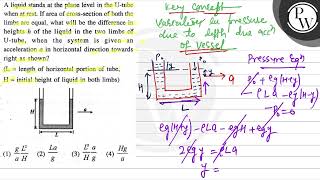 A liquid stands at the plane level in the U-tube
when at rest. If area of cross-section of both the
limbs are equal, what will be the difference in
heights h of the liquid in the two limbs of
U-tube, when the system is given an
acceleration a in horizontal direction towards
right as shown?
(L = length of horizontal portion of tube,
H = initial height of liquid in both limbs)
H
L
(1) g L² / a H (2) La / g (3) L² a / H g (4) Hg / a
Key concept
Variation in pressure
due to
of vessel
Pressure Eqⁿ
P₀ + ρg(H+y)
- ρLa - ρg(H-y)
- P₀ = 0
P₀
y
H
L
a
ρg(H+y) - ρLa - ρgH + ρgy
2ρgy = ρLa
y =
PW